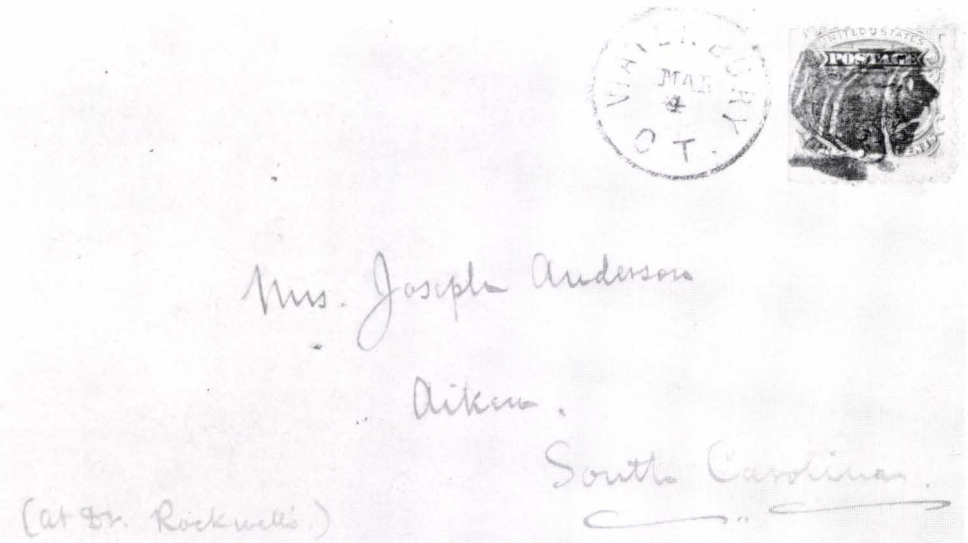 WATERBURY
MAR
4
CT.
UNITED STATES
POSTAGE
Mrs. Joseph Anderson
Aiken.
South Carolina.
(at Dr. Rockwell's.)